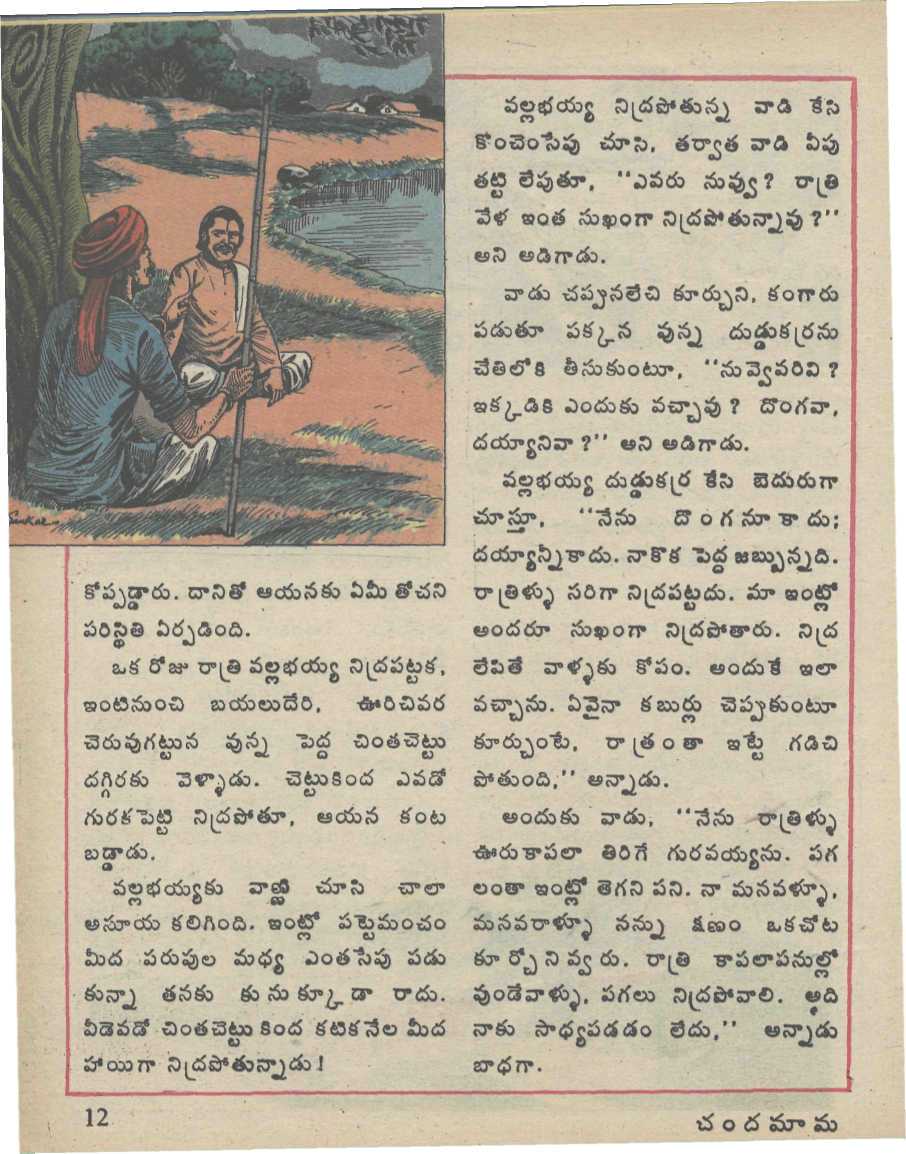 కోప్పడ్డారు. దానితో ఆయనకు ఏమీ తోచని
పరిస్థితి ఏర్పడింది.
ఒక రోజు రాత్రి వల్లభయ్య నిద్రపట్టక,
ఇంటినుంచి బయలుదేరి, ఊరిచివర
చెరువుగట్టున వున్న పెద్ద చింతచెట్టు
దగ్గిరకు వెళ్ళాడు. చెట్టుకింద ఎవడో
గురకపెట్టి నిద్రపోతూ, ఆయన కంట
బడ్డాడు.
వల్లభయ్యకు వాణ్ణి చూసి చాలా
అసూయ కలిగింది. ఇంట్లో పట్టెమంచం
మీద పరుపుల మధ్య ఎంతసేపు పడు
కున్నా తనకు కునుక్కూడా రాదు.
వీడెవడో చింతచెట్టు కింద కటికనేల మీద
హాయిగా నిద్రపోతున్నాడు!
వల్లభయ్య నిద్రపోతున్న వాడి కేసి
కొంచెంసేపు చూసి, తర్వాత వాడి వీపు
తట్టి లేపుతూ, ‘‘ఎవరు నువ్వు? రాత్రి
వేళ ఇంత సుఖంగా నిద్రపోతున్నావు?’’
అని అడిగాడు.
వాడు చప్పునలేచి కూర్చుని, కంగారు
పడుతూ పక్కన వున్న దుడ్డుకర్రను
చేతిలోకి తీసుకుంటూ, ‘‘నువ్వెవరివి?
ఇక్కడికి ఎందుకు వచ్చావు? దొంగవా,
దయ్యానివా?’’ అని అడిగాడు.
వల్లభయ్య దుడ్డుకర్ర కేసి బెదురుగా
చూస్తూ, ‘‘నేను దొంగనూకాదు;
దయ్యాన్నీకాదు. నాకొక పెద్ద జబ్బున్నది.
రాత్రిళ్ళు సరిగా నిద్రపట్టదు. మా ఇంట్లో
అందరూ సుఖంగా నిద్రపోతారు. నిద్ర
లేపితే వాళ్ళకు కోపం. అందుకే ఇలా
వచ్చాను. ఏవైనా కబుర్లు చెప్పుకుంటూ
కూర్చుంటే, రాత్రంతా ఇట్టే గడిచి
పోతుంది,’’ అన్నాడు.
అందుకు వాడు, ‘‘నేను రాత్రిళ్ళు
ఊరుకాపలా తిరిగే గురవయ్యను. పగ
లంతా ఇంట్లో తెగని పని. నా మనవళ్ళూ,
మనవరాళ్ళూ నన్ను క్షణం ఒకచోట
కూర్చోనివ్వరు. రాత్రి కాపలాపనుల్లో
వుండేవాళ్ళు, పగలు నిద్రపోవాలి. అది
నాకు సాధ్యపడడం లేదు,’’ అన్నాడు
బాధగా.
12
చందమామ